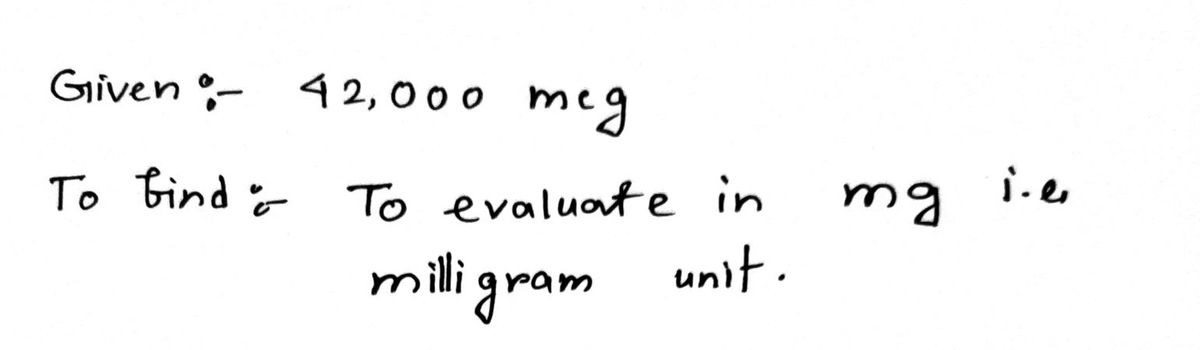 Given :- 42,000 mcg
To find :- To evaluate in mg i.e,
milligram unit.